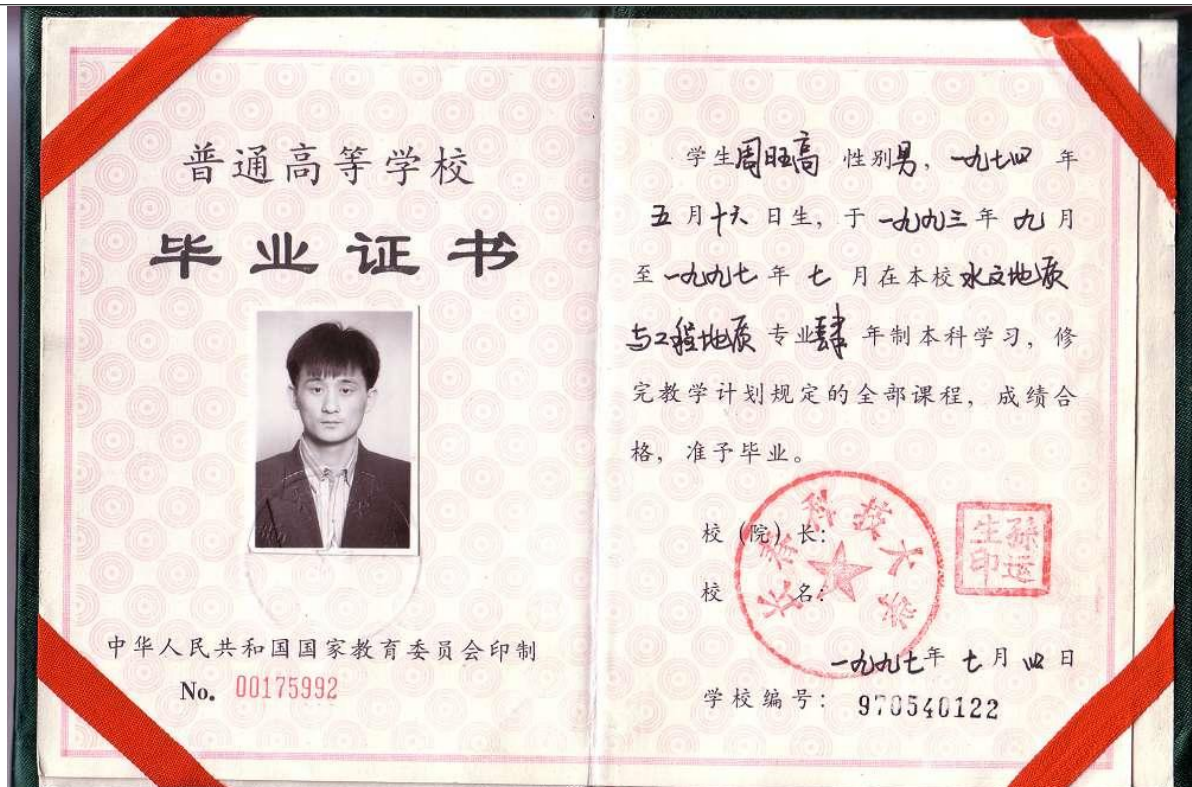 普通高等学校
毕业证书
中华人民共和国国家教育委员会印制
No. 00175992
学生周旺高 性别男，一九七四 年
五 月十六 日生，于 一九九三 年 九 月
至 一九九七 年 七 月在本校水文地质
与工程地质 专业肆 年制本科学习，修
完教学计划规定的全部课程，成绩合
格，准予毕业。
校（院）长：
孙运生印
校 名：
长春科技大学
一九九七年 七 月 四 日
学校编号： 970540122